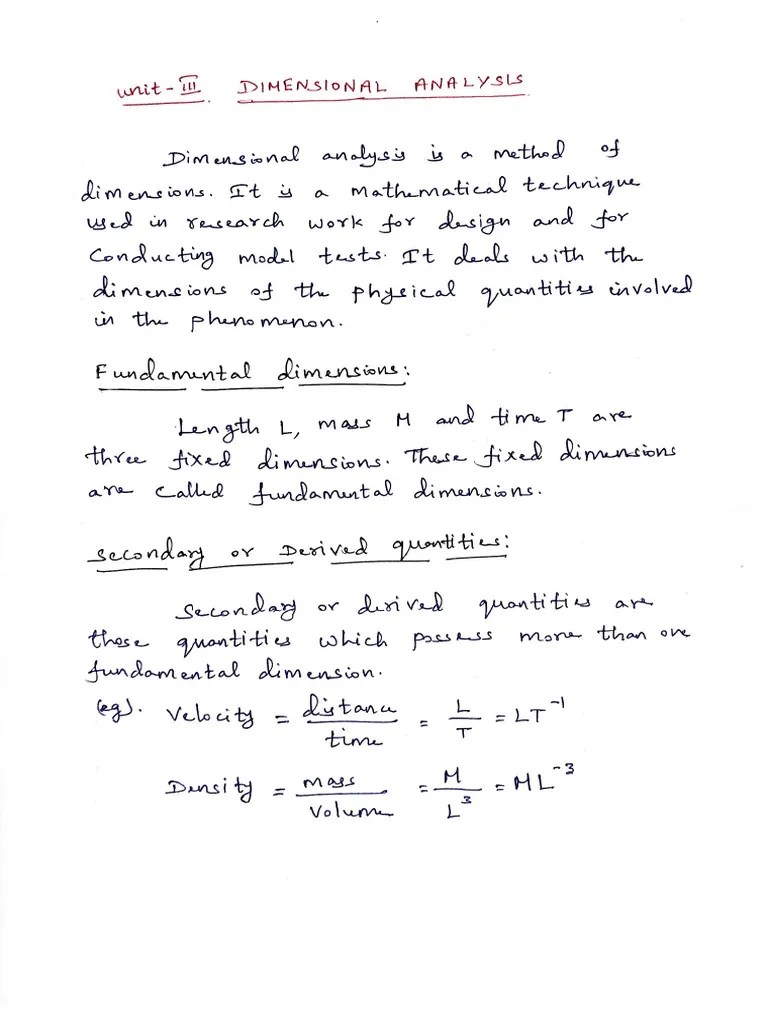 Unit-III DIMENSIONAL ANALYSIS
Dimensional analysis is a method of
dimensions. It is a mathematical technique
used in research work for design and for
Conducting model tests. It deals with the
dimensions of the physical quantities involved
in the phenomenon.
Fundamental dimensions:
Length L, mass M and time T are
three fixed dimensions. These fixed dimensions
are called fundamental dimensions.
Secondary or Derived quantities:
Secondary or derived quantities are
those quantities which possess more than one
fundamental dimension.
(eg). Velocity = distance/time = L/T = LT⁻¹
Density = mass/Volume = M/L³ = ML⁻³